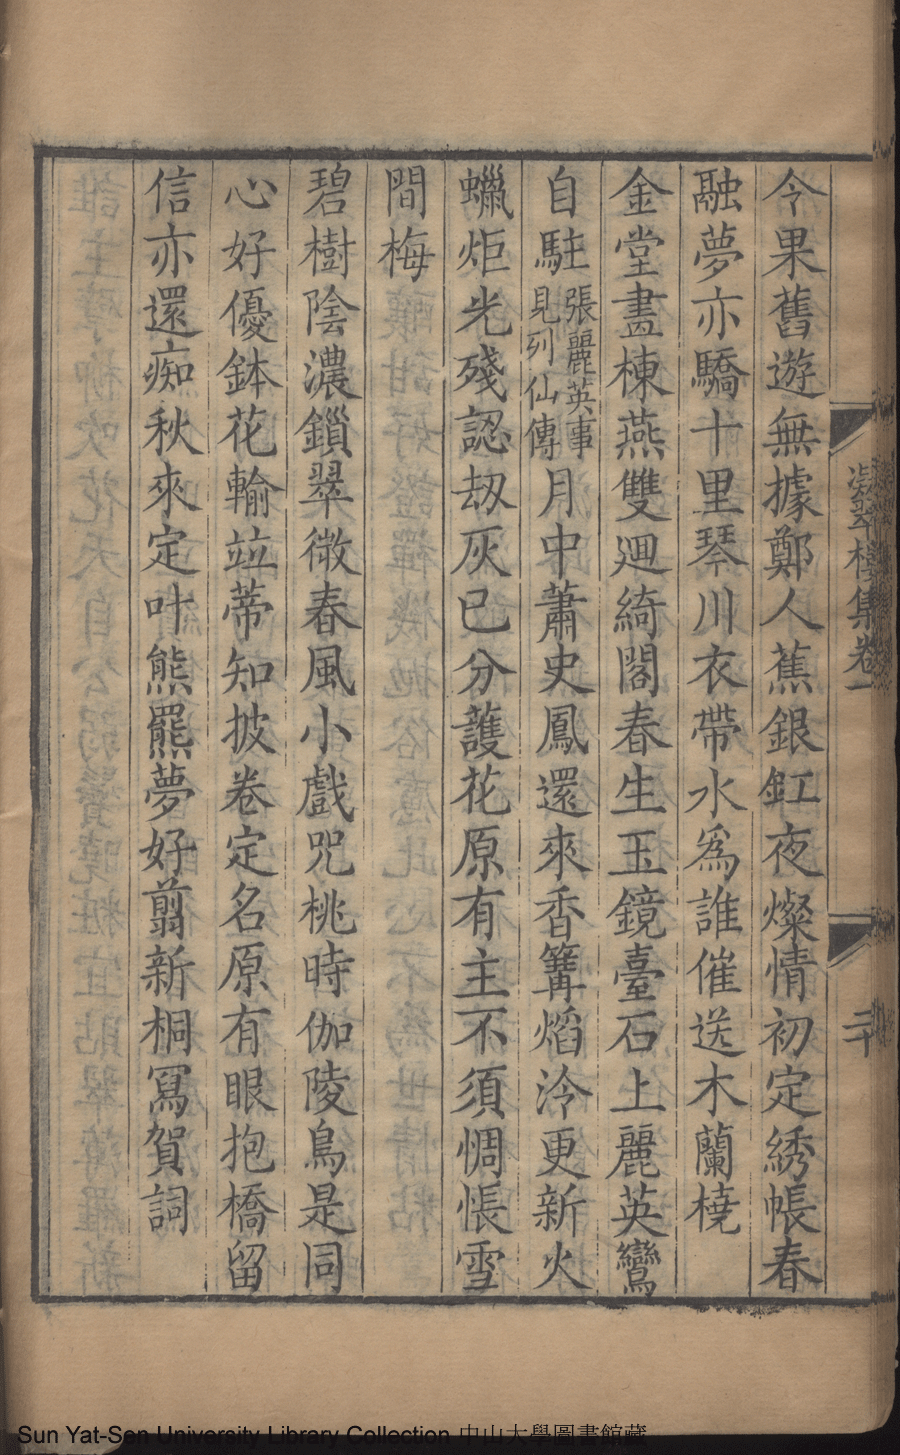 今果舊遊無據鄭人蕉銀釭夜燦情初定綉帳春
融夢亦驕十里琴川衣帶水爲誰催送木蘭橈
金堂畵棟燕雙廻綺閣春生玉鏡臺石上麗英鸞
自駐張麗英事見列仙傳月中蕭史鳳還來香篝熖冷更新火
蠟炬光殘認刼灰已分護花原有主不須惆悵雪
間梅
碧樹陰濃鎻翠微春風小戲咒桃時伽陵鳥是同
心好優鉢花輸竝蒂知披卷定名原有眼抱橋留
信亦還痴秋來定叶熊羆夢好翦新桐冩賀詞
凝翠樓集卷一
二十
Sun Yat-Sen University Library Collection 中山大學圖書館藏